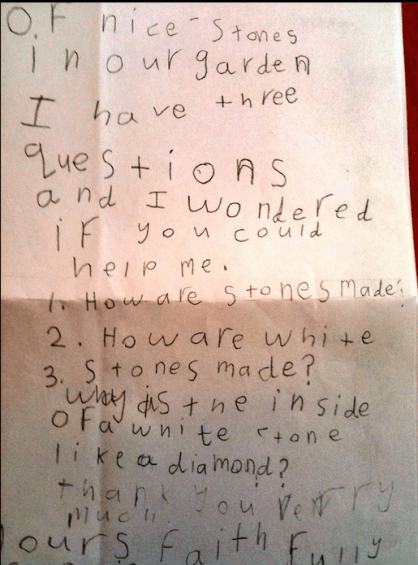 Of nice stones
in our garden
I have three
questions
and I wondered
if you could
help me.
1. How are stones made?
2. How are white
3. stones made?
why is the inside
of a white stone
like a diamond?
thank you verry
much
ours faith fully